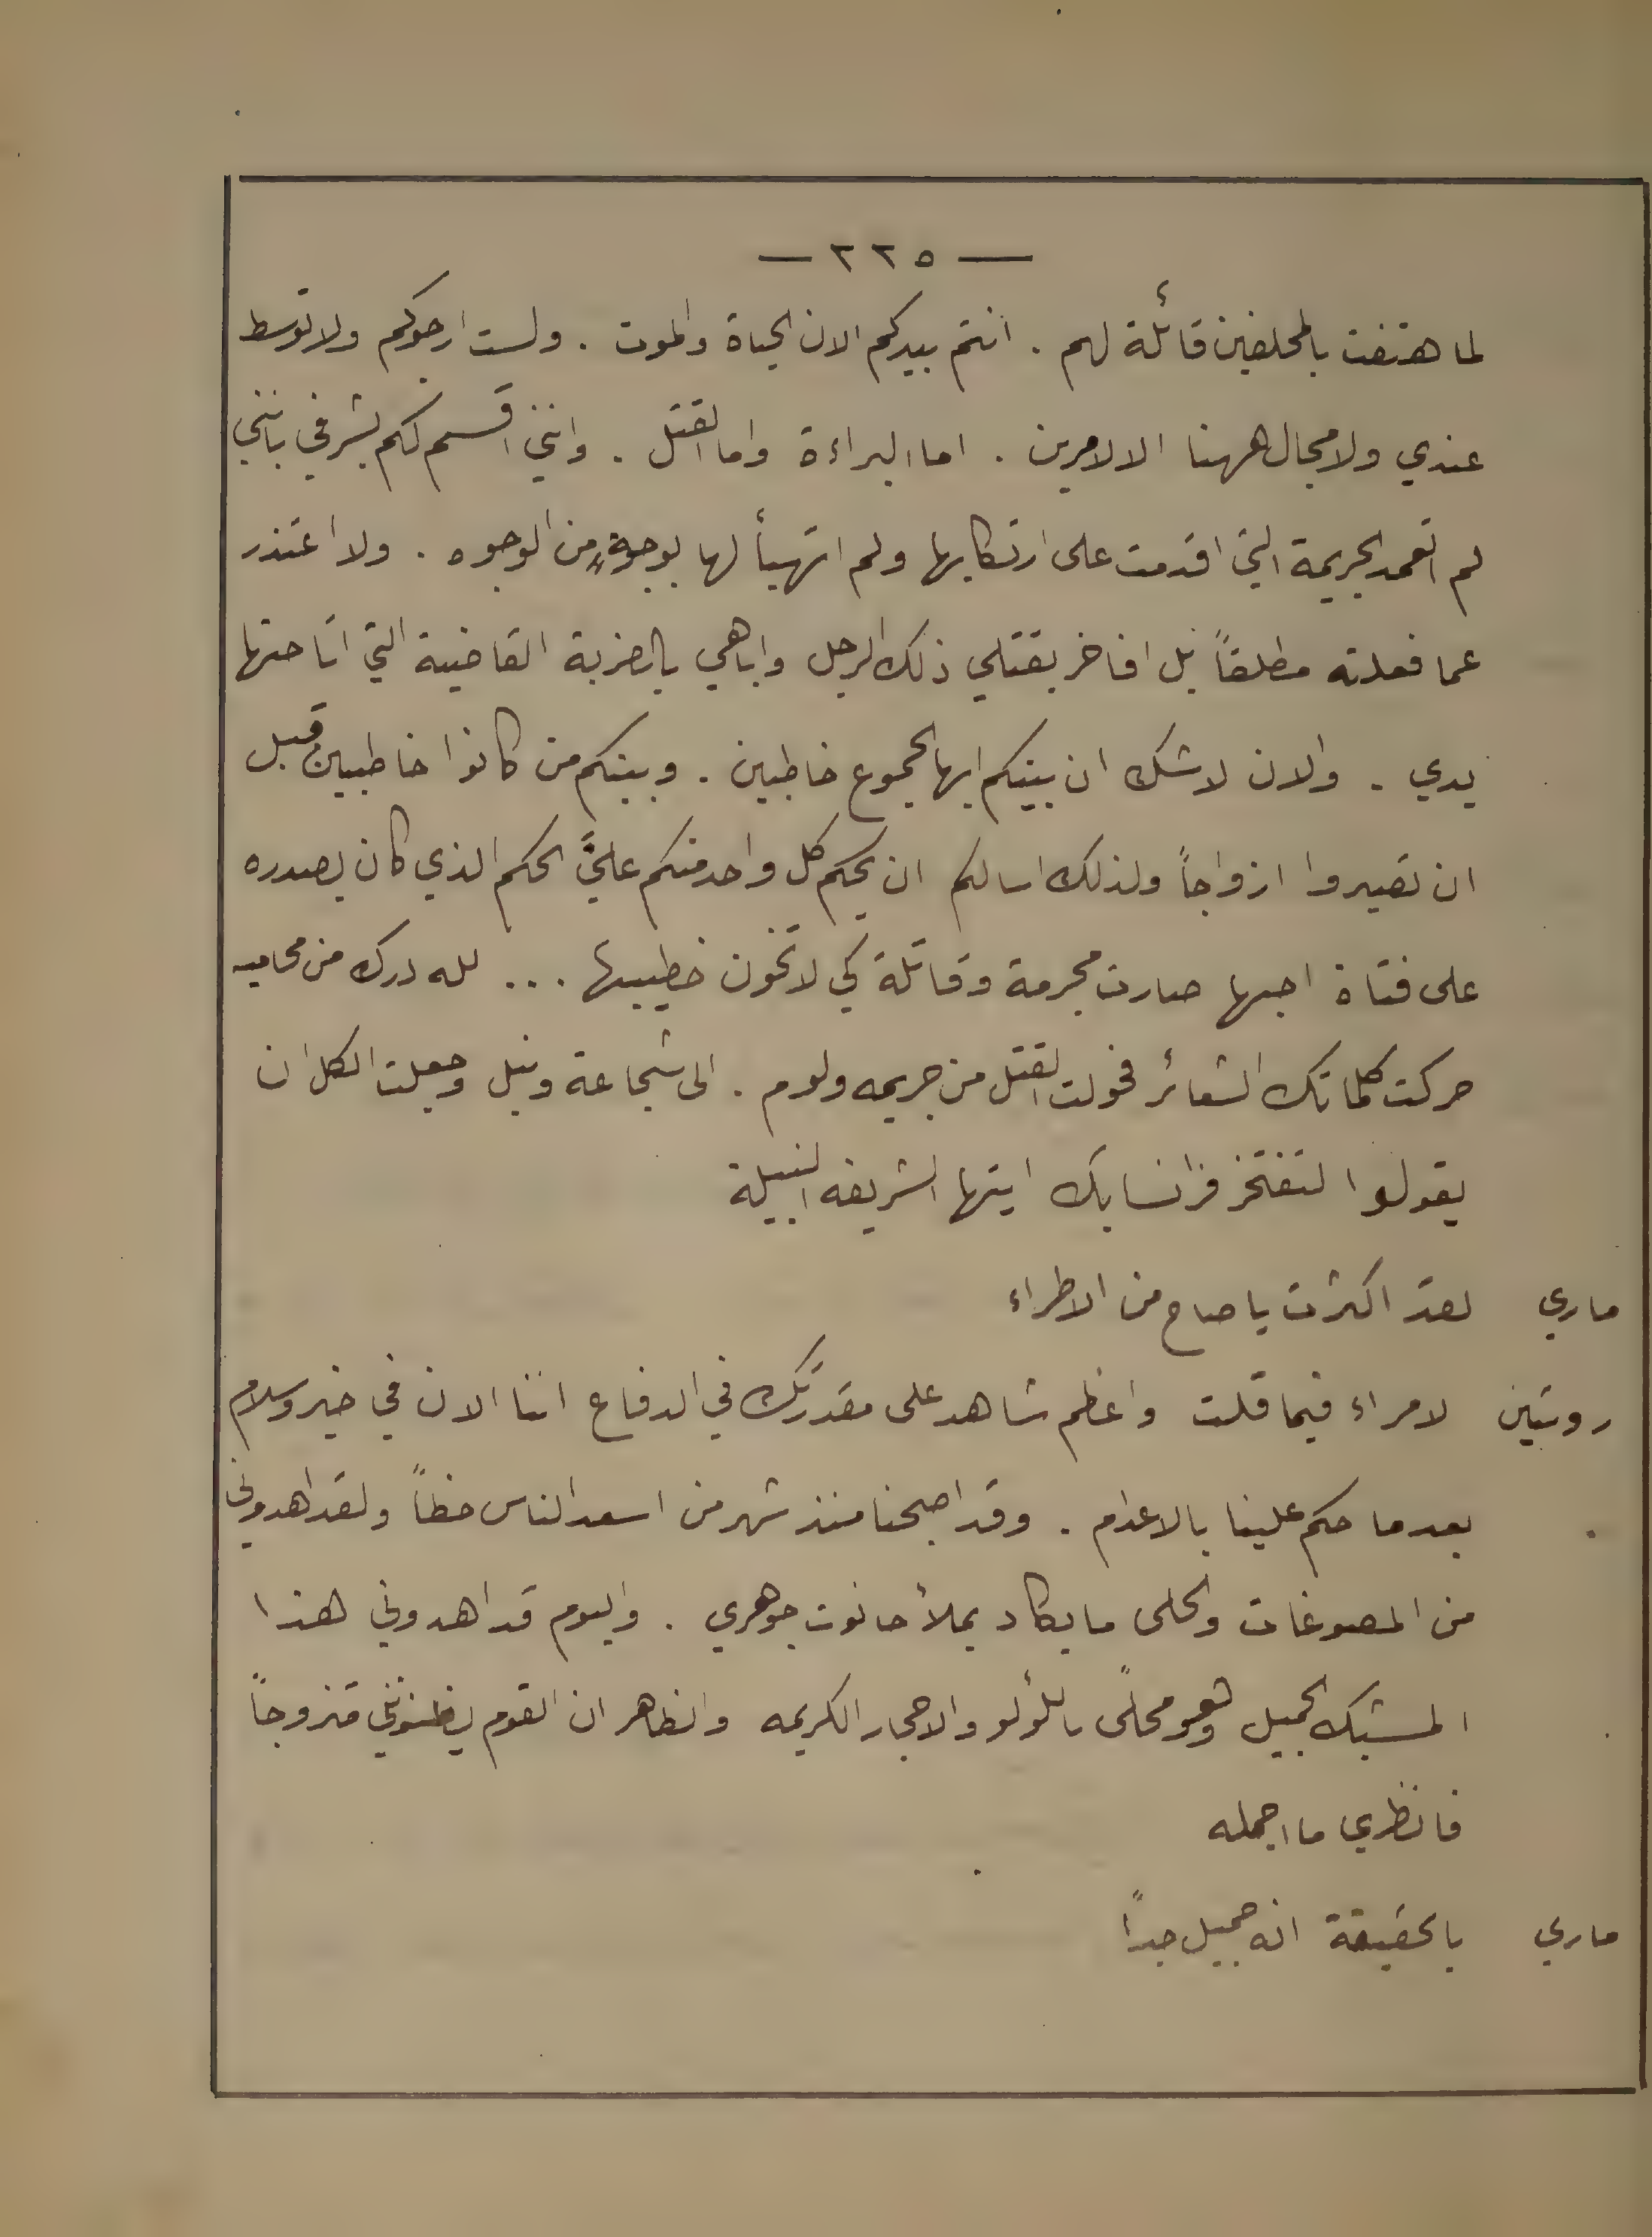 — ٢٢٥ —
لما هتفت بالمحلفين قائلة لهم . انتم بيدكم الان الحياة والموت . ولست ارجوكم ولا توسط
عندي ولا مجال ههنا الا لامرين . اما البراءة واما القتل . وانني اقسم لكم بشرفي بانني
لم اتعمد الجريمة التي اقدمت على ارتكابها ولم اتهيأ لها بوجهٍ من الوجوه . ولا اعتذر
عما فعلته مطلقاً بل افاخر بقتلي ذلك الرجل واباهي بالضربة القاضية التي اتاحتها
يدي . والان لا شك ان بينكم ايها الجموع خاطبين . وبينكم من كانوا خاطبين قبل
ان تصيروا ازواجاً ولذلك اسالكم ان يحكم كل واحد منكم عليَّ الحكم الذي كان يصدره
على فتاة احبها صارت مجرمة وقاتلة كي لا تخون خطيبها ... لله درك من محاميه
حركت كلماتك الشعائر فحولت القتل من جريمه ولوم . الى شجاعة ونبل وجعلت الكل ان
يقولوا لتفتخر فرانسا بك ايتها الشريفه النبيلة
ماري لقد اكثرت يا صاح من الاطراء
روستين لا مراء فيما قلت واعظم شاهد على مقدرتك في الدفاع اننا الان في خير وسلام
بعدما حكم علينا بالاعدام . وقد اصبحنا منذ شهر من اسعد الناس حظاً ولقد اهدوني
من المصوغات والحلى ما يكاد يملأ حانوت جوهري . واليوم قد اهدوني هذا
المشبك الجميل وهو محلًى باللؤلو والاحجار الكريمه والظاهر ان القوم يظنونني متزوجاً
فانظري ما اجمله
ماري بالحقيقة انه جميل جداً